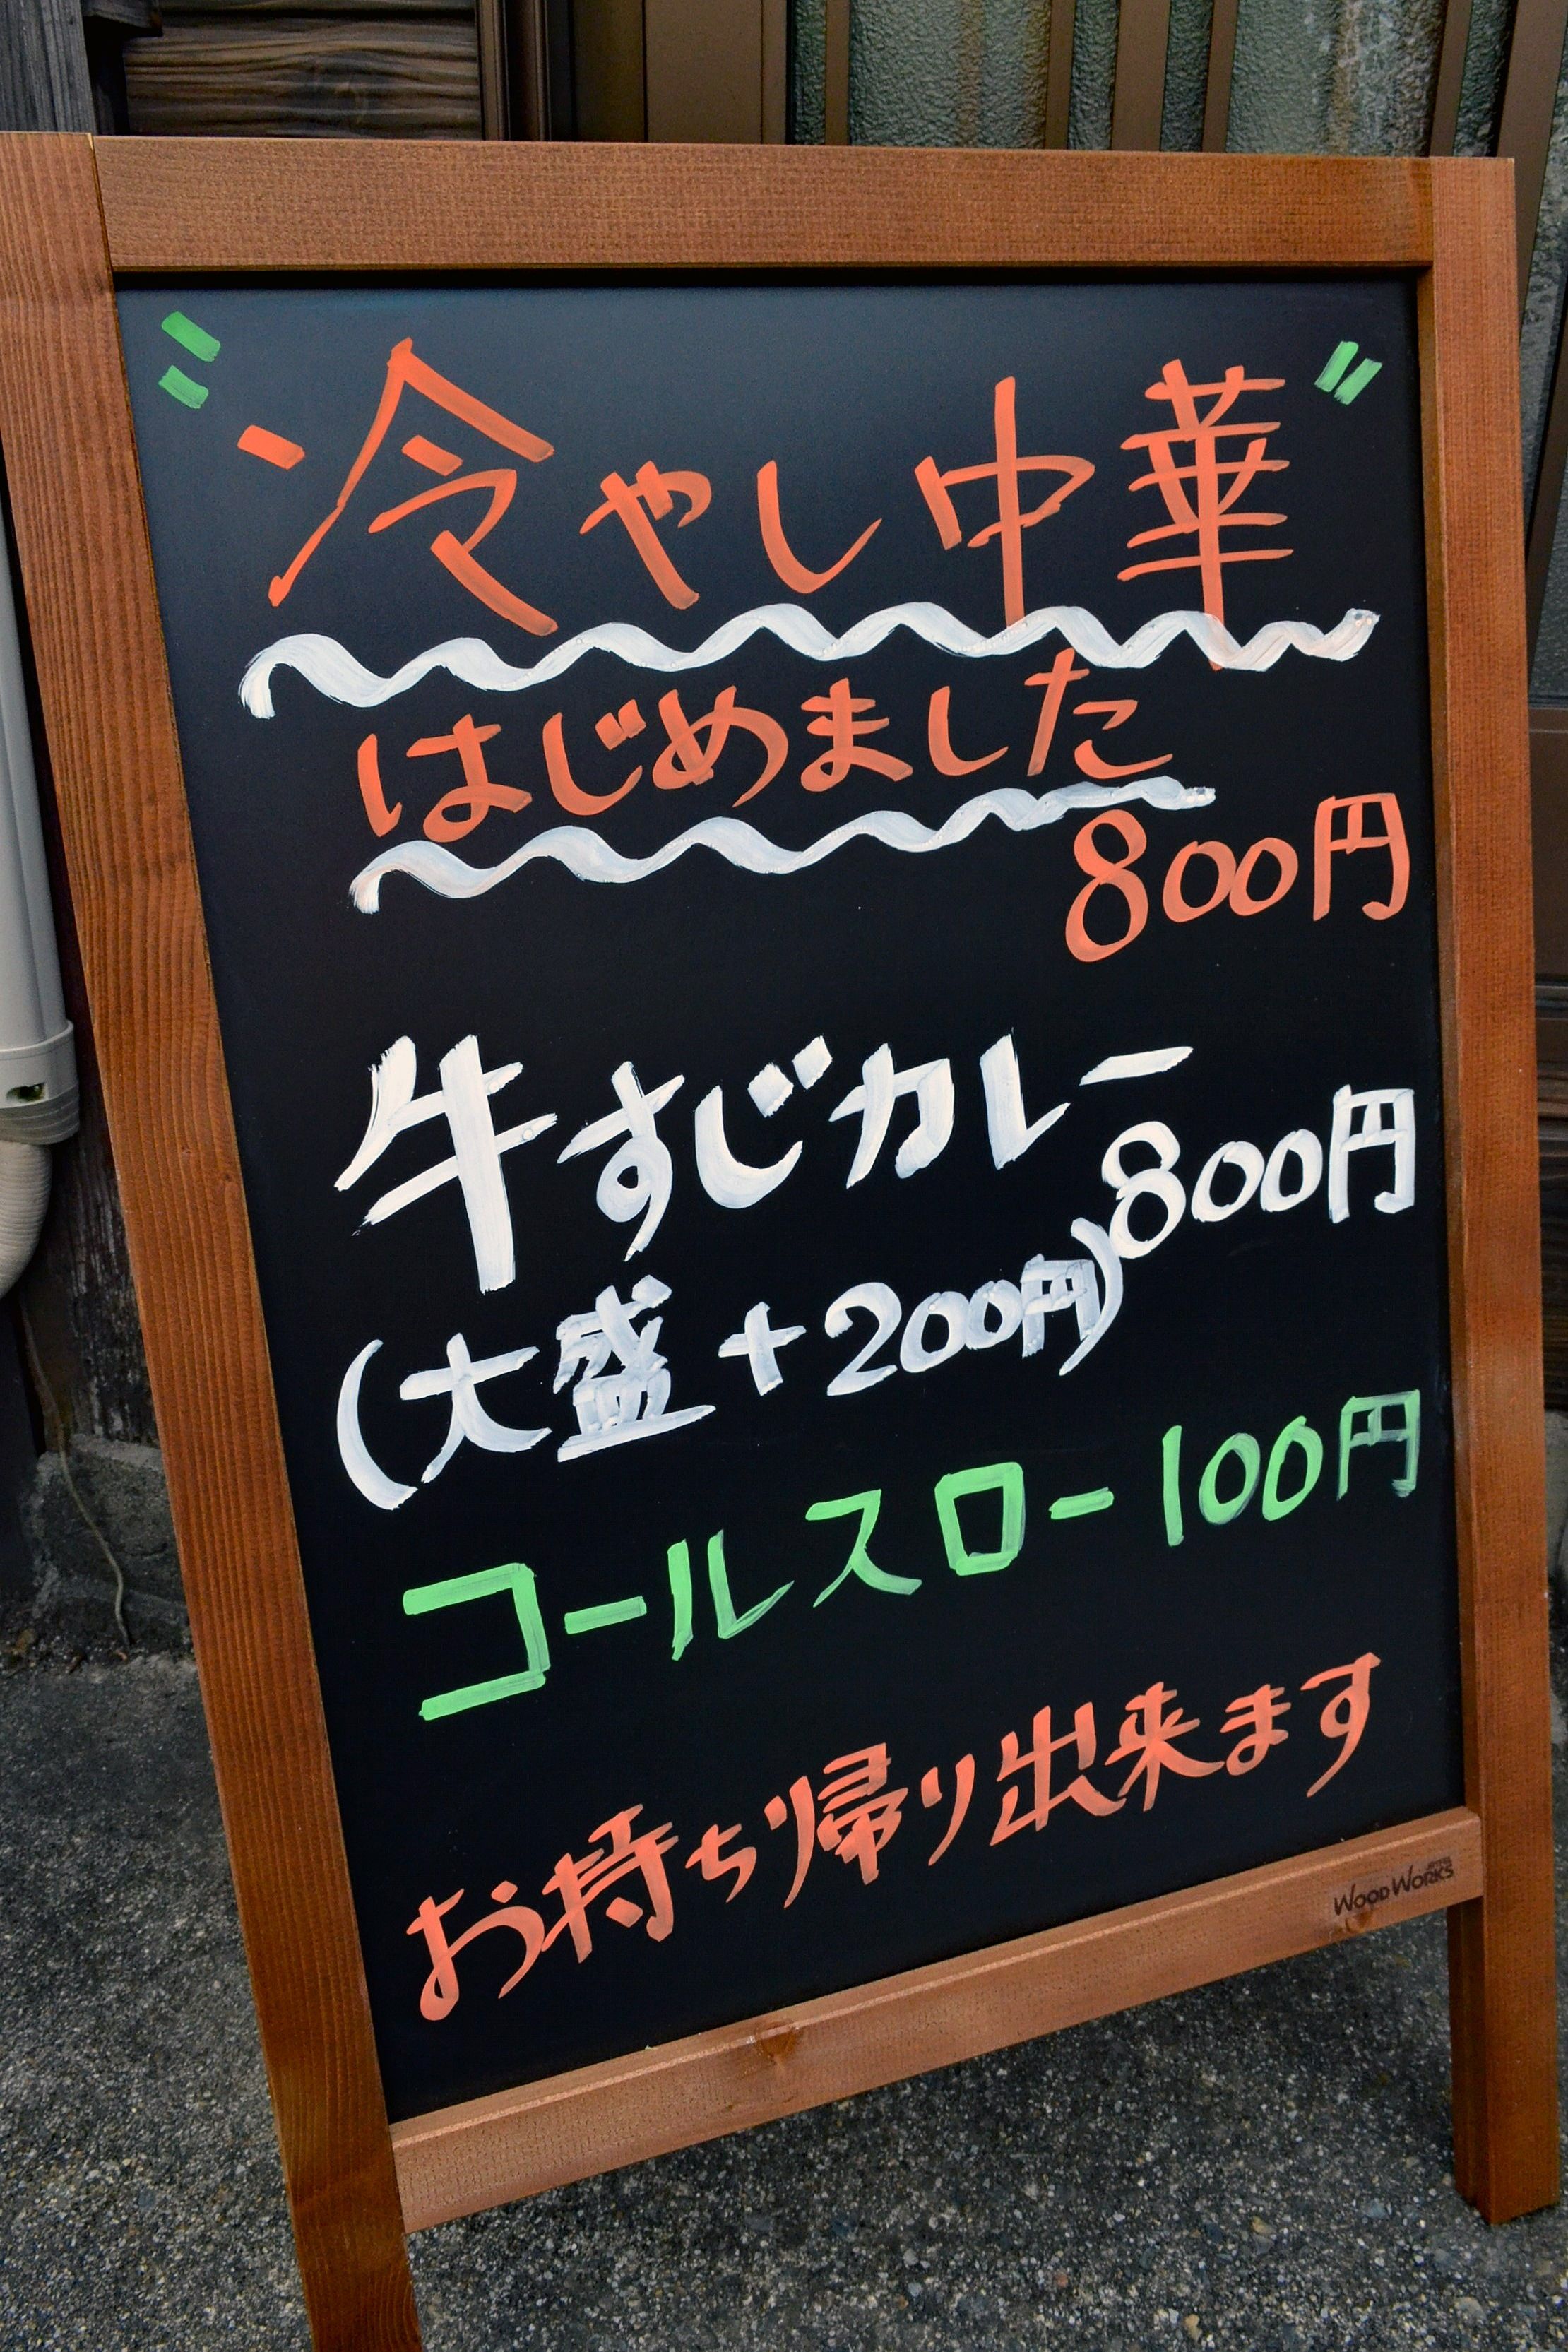 〝冷やし中華〟
はじめました
800円
牛すじカレー
800円
(大盛+200円)
コールスロー100円
お持ち帰り出来ます
WOODWORKS